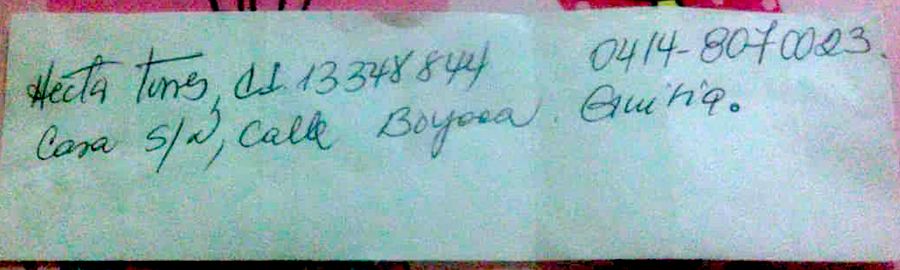 Hecta Torres, C.I. 13348844 0414-8070023.
Casa S/N, Calle Boyaca. Güiria.